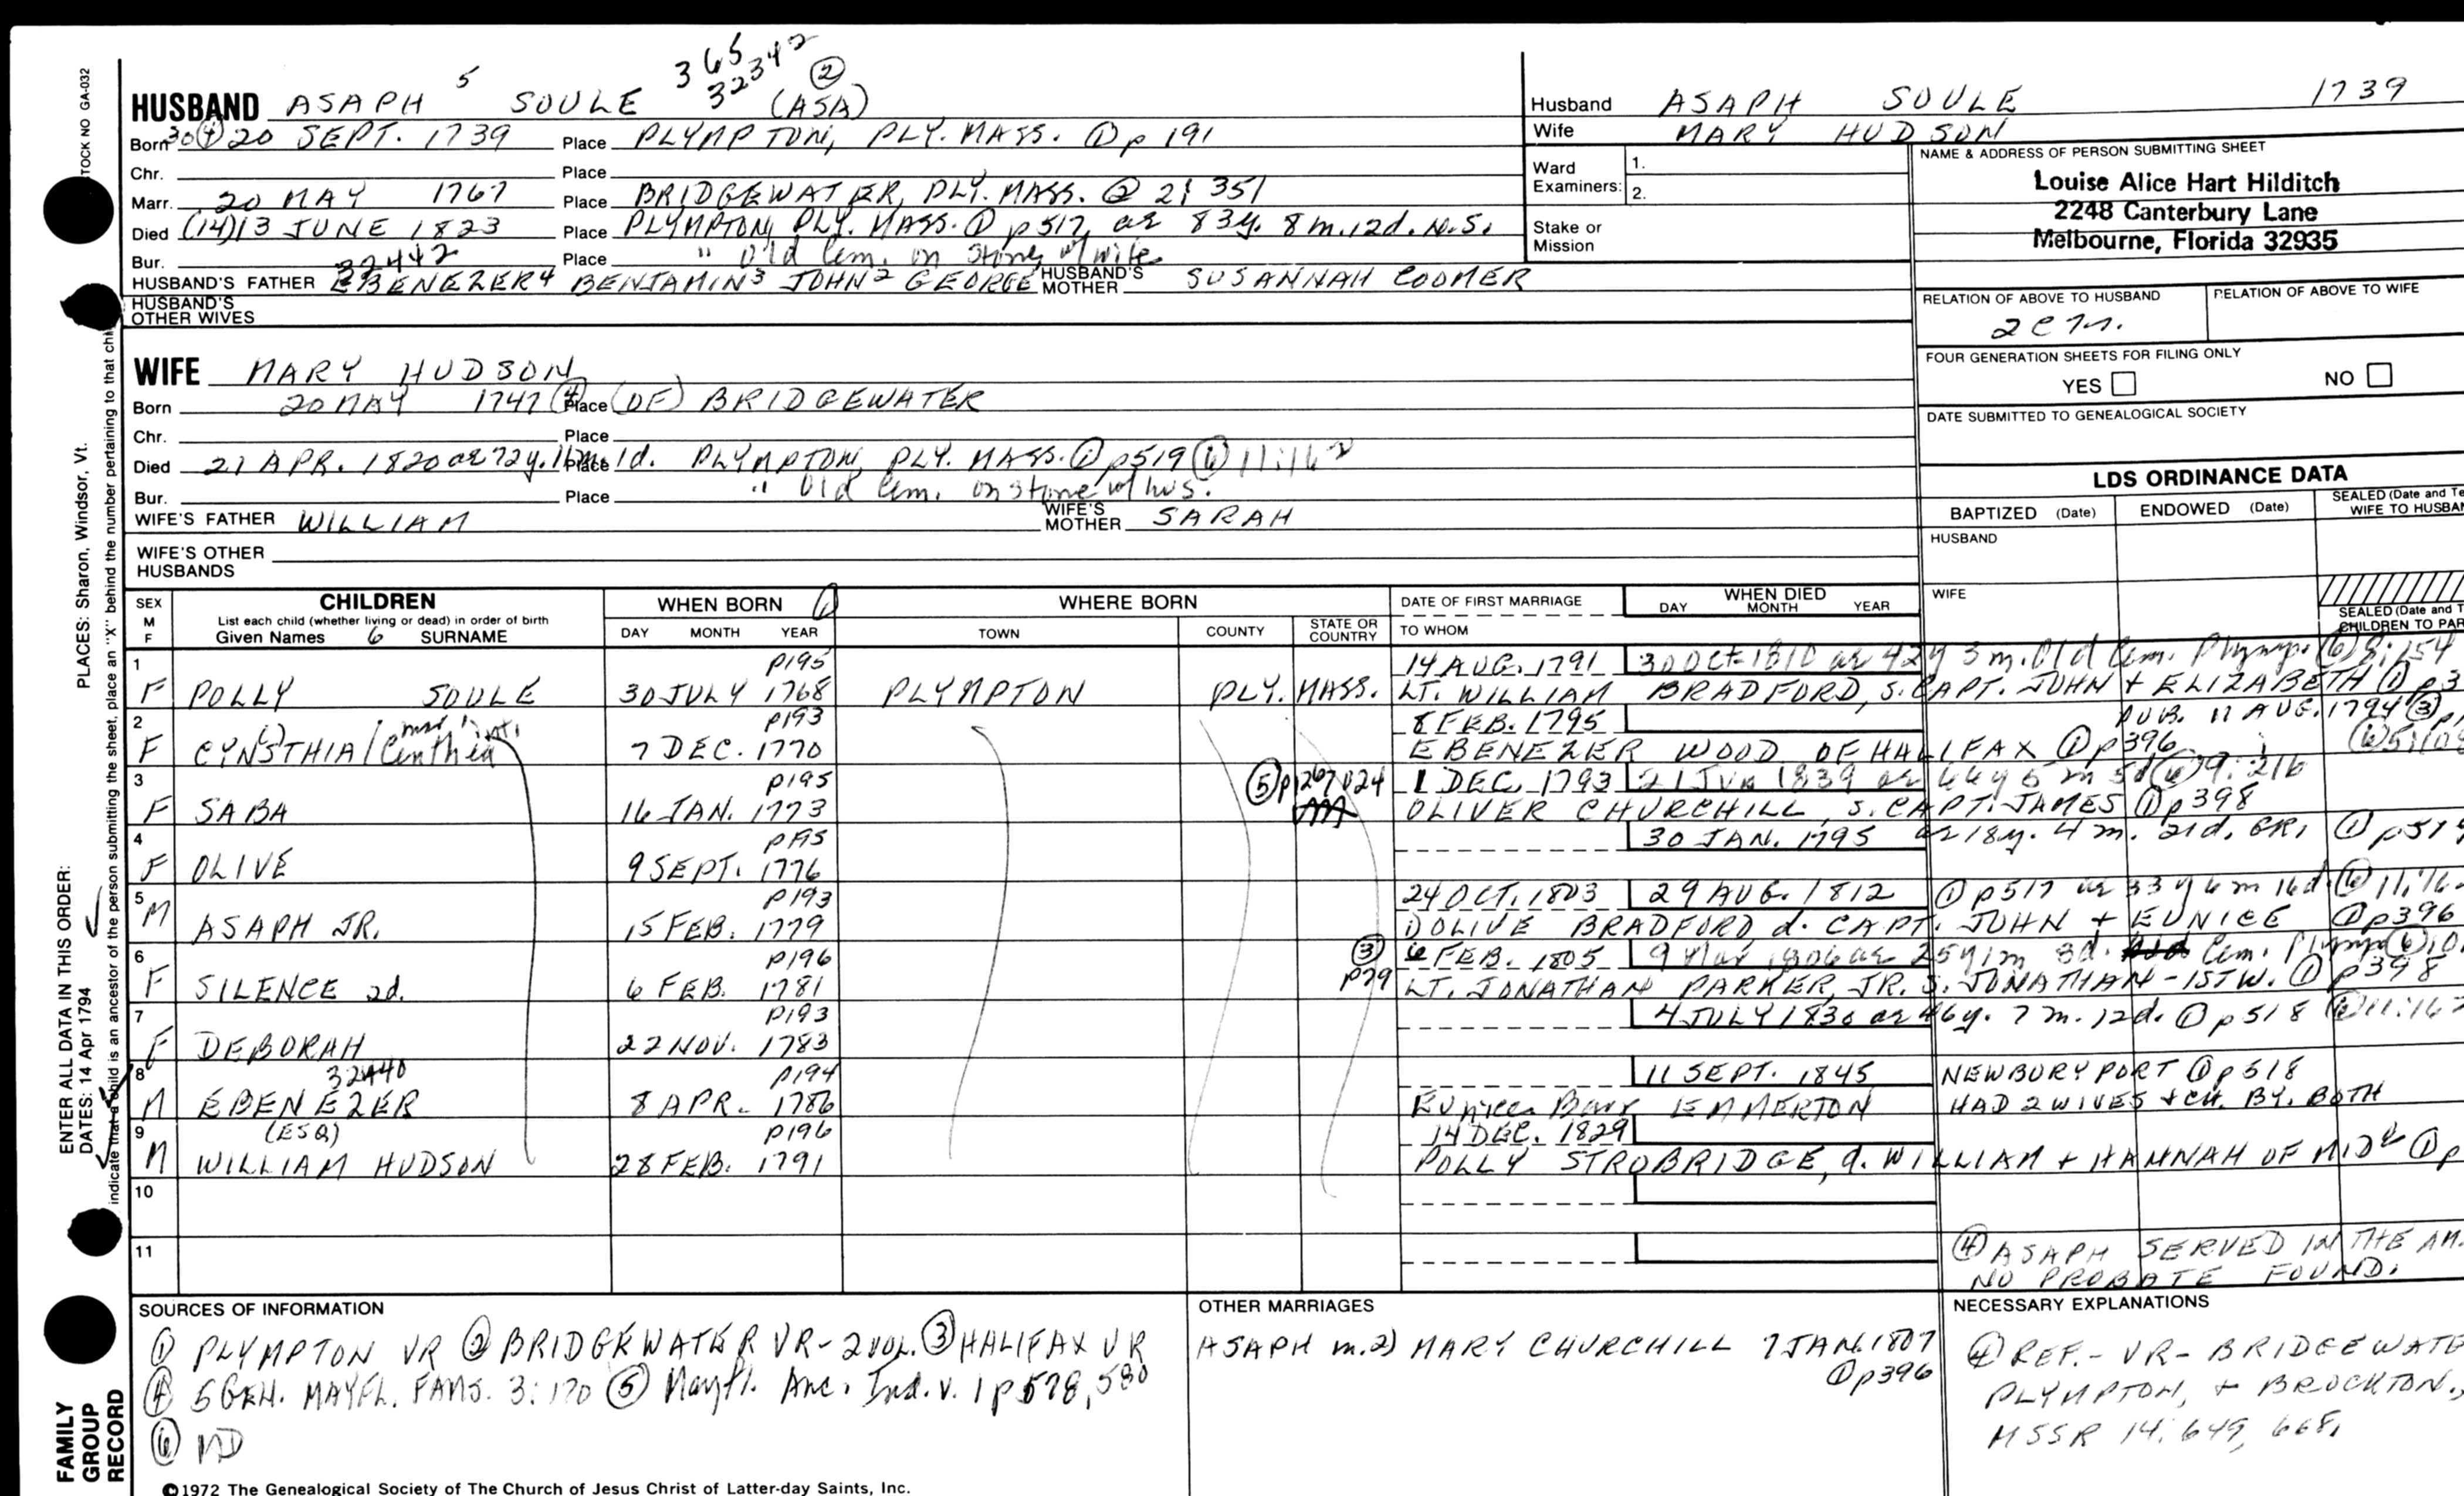 365
32342
HUSBAND ASAPH 5 SOULE (ASA) ②
Born 30 ④ 20 SEPT. 1739 Place PLYMPTON, PLY. MASS. ① p 191
Chr. Place
Marr. 20 MAY 1767 Place BRIDGEWATER, PLY. MASS. ② 2; 351
Died (14) 13 JUNE 1823 Place PLYMPTON, PLY. MASS. ① p 517, ae 83y. 8m. 12d. N.S.
Bur. Place " Old Cem. on stone w/ wife
32442
HUSBAND'S FATHER EBENEZER4 BENJAMIN3 JOHN2 GEORGE HUSBAND'S MOTHER SUSANNAH COOMER
HUSBAND'S OTHER WIVES
WIFE MARY HUDSON
Born 20 MAY 1747 ④ Place (OF) BRIDGEWATER
Chr. Place
Died 21 APR. 1820 ae 72y. 11m. 1d. Place PLYMPTON, PLY. MASS. ① p519 ⑥ 11:162
Bur. Place " Old Cem. on stone w/ hus.
WIFE'S FATHER WILLIAM WIFE'S MOTHER SARAH
WIFE'S OTHER HUSBANDS
Husband ASAPH SOULE 1739
Wife MARY HUDSON
Ward Examiners: 1.
2.
Stake or Mission
NAME & ADDRESS OF PERSON SUBMITTING SHEET
Louise Alice Hart Hilditch
2248 Canterbury Lane
Melbourne, Florida 32935
RELATION OF ABOVE TO HUSBAND RELATION OF ABOVE TO WIFE
FOUR GENERATION SHEETS FOR FILING ONLY
YES NO
DATE SUBMITTED TO GENEALOGICAL SOCIETY
LDS ORDINANCE DATA
BAPTIZED (Date) ENDOWED (Date) SEALED (Date and Te
WIFE TO HUSBAN
HUSBAND
WIFE
SEALED (Date and T
CHILDREN TO PAR
SEX M F CHILDREN WHEN BORN ① WHERE BORN DATE OF FIRST MARRIAGE WHEN DIED
List each child (whether living or dead) in order of birth
Given Names 6 SURNAME DAY MONTH YEAR TOWN COUNTY STATE OR COUNTRY TO WHOM DAY MONTH YEAR
1 p195 14 AUG. 1791 30 Oct. 1810 ae 42y 3m. Old Cem. Plymp. ⑥ 8:154
F POLLY SOULE 30 JULY 1768 PLYMPTON PLY. MASS. LT. WILLIAM BRADFORD, S. CAPT. JOHN + ELIZABETH ① p3
2 p193 8 FEB. 1795 PUB. 11 AUG. 1794 ③
F CYNSTHIA / Cinthia 7 DEC. 1770 EBENEZER WOOD OF HALIFAX ① p396
3 p195 ⑤ 1 DEC. 1793 21 Jun 1839 ae 66y 5m 5d ⑥ 9:216
F SABA 16 JAN. 1773 OLIVER CHURCHILL, S. CAPT. JAMES ① p398
4 p195 30 JAN. 1795 ae 18y. 4m. 21d. GR1 ① p51
F OLIVE 9 SEPT. 1776
5 p193 24 OCT. 1803 29 AUG. 1812 ① p517 ae 33y 6m 16d. ⑥ 11:16
M ASAPH JR. 15 FEB. 1779 DOLIVE BRADFORD d. CAPT. JOHN + EUNICE ① p396
6 p196 ③ 6 FEB. 1805 9 Mar 1806 ae 25y 1m 3d. Cem. Plymp ⑥ 10
F SILENCE 2d. 6 FEB. 1781 p79 LT. JONATHAN PARKER, JR. S. JONATHAN - 1ST W. ① p398
7 p193 4 JULY 1830 ae 46y. 7m. 12d. ① p518 ⑥ 11:162
F DEBORAH 22 NOV. 1783
8 32440 p194 11 SEPT. 1845 NEWBURYPORT ① p518
M EBENEZER 8 APR. 1786 EMMERTON HAD 2 WIVES + CH. BY. BOTH
(ESQ)
9 p196 14 DEC. 1829
M WILLIAM HUDSON 28 FEB. 1791 POLLY STROBRIDGE, d. WILLIAM + HANNAH OF MID. ① p
10
11 ④ ASAPH SERVED IN THE AM.
NO PROBATE FOUND.
SOURCES OF INFORMATION
① PLYMPTON VR ② BRIDGEWATER VR - 2 VOL. ③ HALIFAX VR
④ 5 GEN. MAYFL. FAMS. 3:170 ⑤ Mayfl. Anc. Ind. v. 1 p 578, 580
⑥ MD
OTHER MARRIAGES
ASAPH m. 2) MARY CHURCHILL 7 JAN. 1807
① p396
NECESSARY EXPLANATIONS
④ REF. - VR - BRIDGEWATE
PLYMPTON, + BROCKTON,
MSSR 14:649, 668,
©1972 The Genealogical Society of The Church of Jesus Christ of Latter-day Saints, Inc.
STOCK NO GA-032
PLACES: Sharon, Windsor, Vt.
ENTER ALL DATA IN THIS ORDER:
DATES: 14 Apr 1794
indicate that a child is an ancestor of the person submitting the sheet, place an "X" behind the number pertaining to that chil
FAMILY
GROUP
RECORD